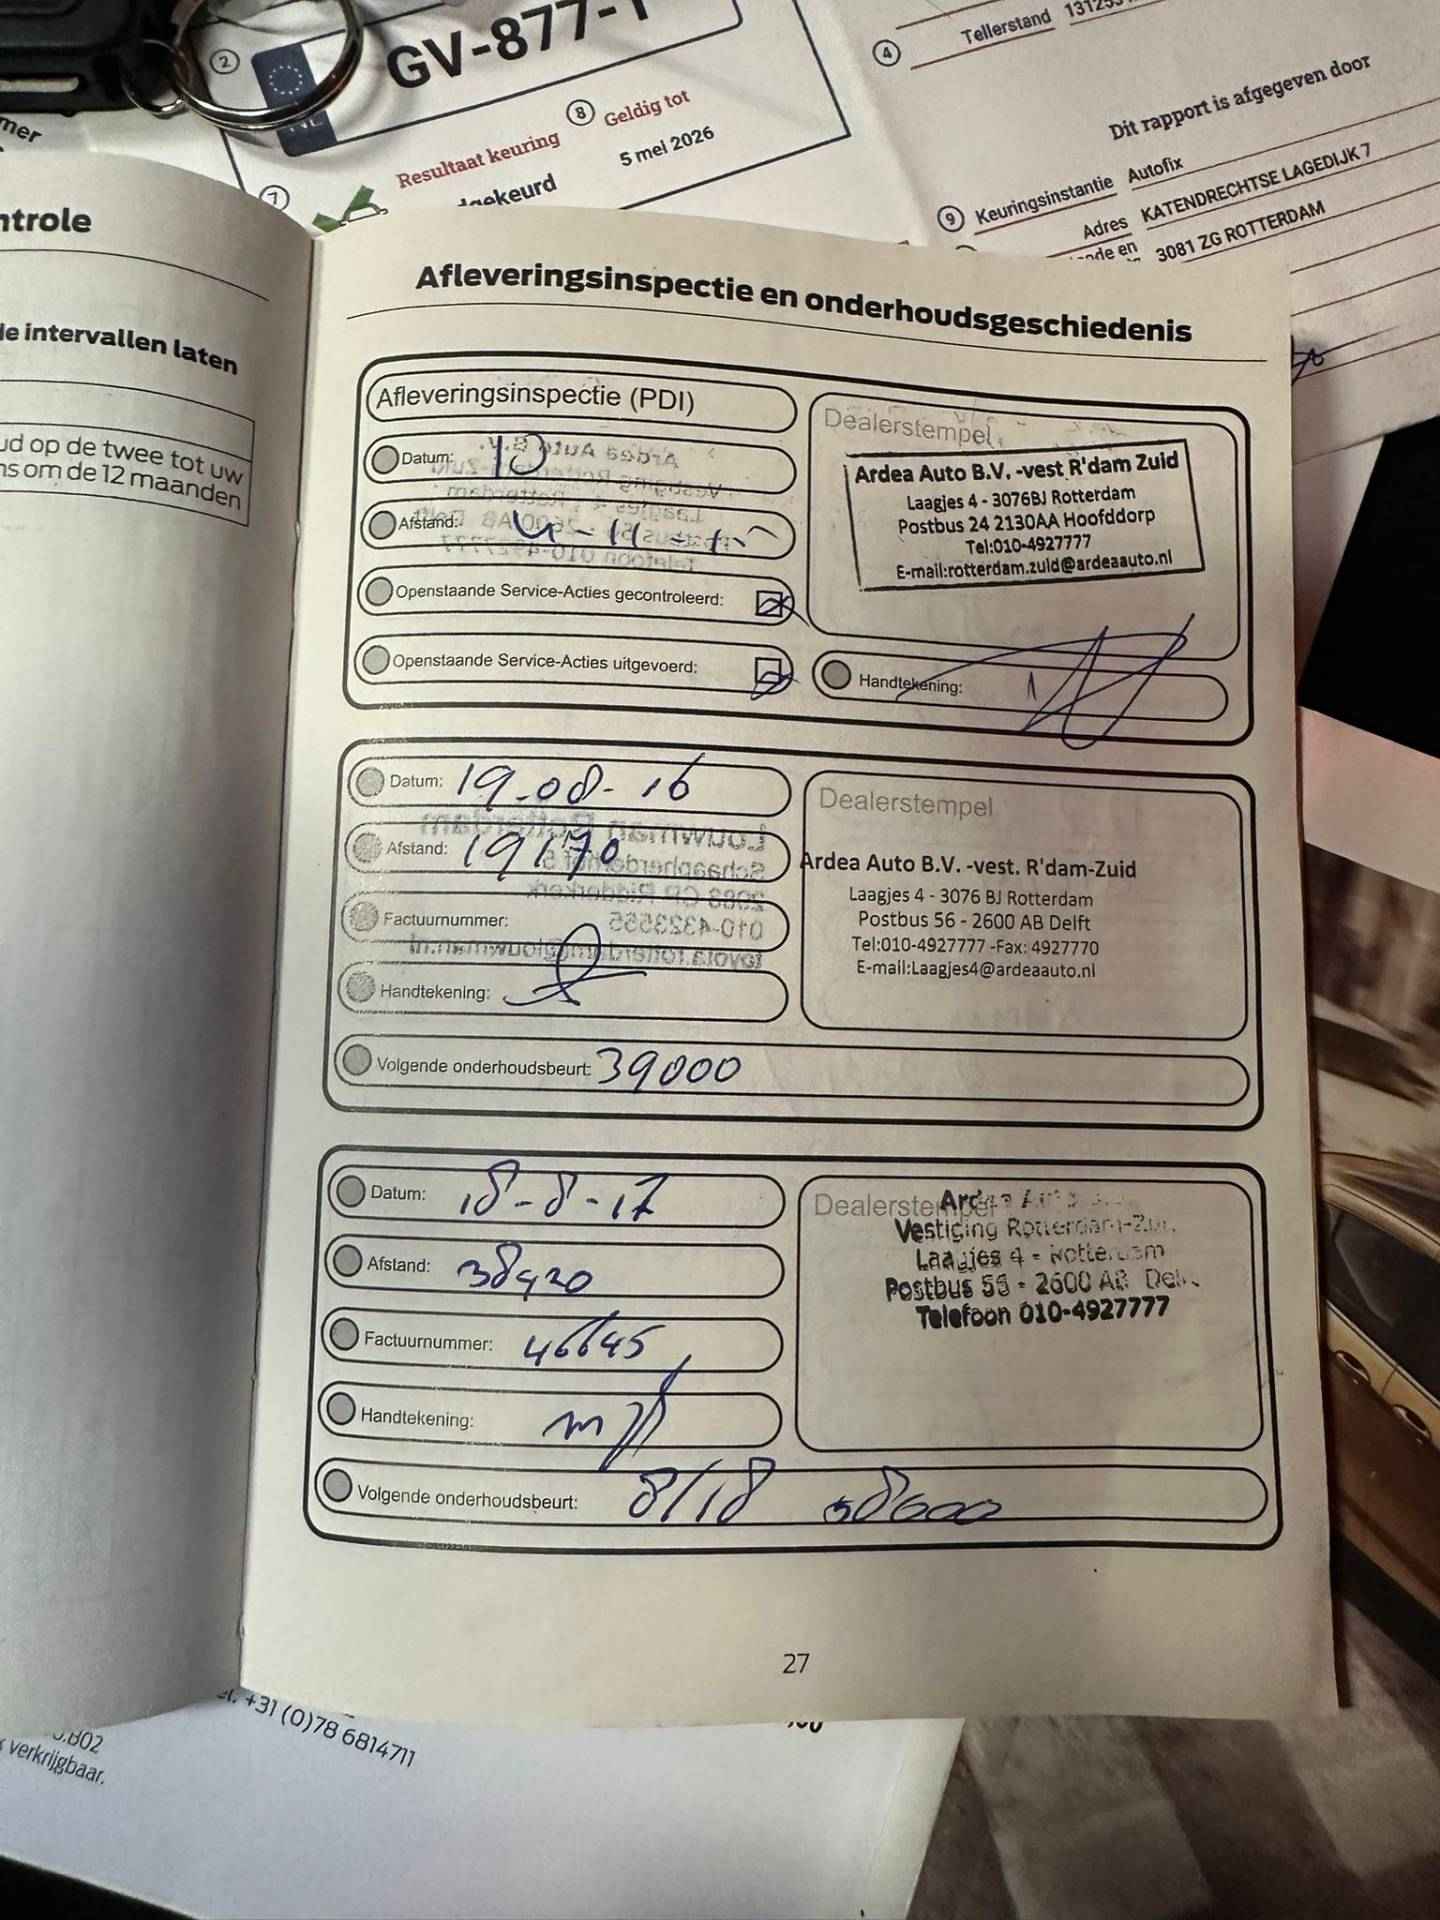 2
GV-877-
NL
7
Resultaat keuring
gekeurd
8
Geldig tot
5 mei 2026
4
Tellerstand
Dit rapport is afgegeven door
9
Keuringsinstantie
Autofix
Adres
KATENDRECHTSE LAGEDIJK 7
3081 ZG ROTTERDAM
mer
ntrole
de intervallen laten
ud op de twee tot uw
ns om de 12 maanden
Afleveringsinspectie en onderhoudsgeschiedenis
Afleveringsinspectie (PDI)
Datum: 10
Afstand:
Openstaande Service-Acties gecontroleerd:
Openstaande Service-Acties uitgevoerd:
Dealerstempel
Ardea Auto B.V. -vest R'dam Zuid
Laagjes 4 - 3076BJ Rotterdam
Postbus 24 2130AA Hoofddorp
Tel:010-4927777
E-mail:rotterdam.zuid@ardeaauto.nl
Handtekening:
Datum: 19-08-16
Afstand: 19170
Factuurnummer:
Handtekening:
Volgende onderhoudsbeurt: 39000
Dealerstempel
Ardea Auto B.V. -vest. R'dam-Zuid
Laagjes 4 - 3076 BJ Rotterdam
Postbus 56 - 2600 AB Delft
Tel:010-4927777 -Fax: 4927770
E-mail:Laagjes4@ardeaauto.nl
Datum: 18-8-17
Afstand: 38420
Factuurnummer: 46645
Handtekening:
Volgende onderhoudsbeurt: 8/18 58000
Dealerstempel
Ardea Auto
Vestiging Rotterdam-Zui
Laagjes 4 - Rotterdam
Postbus 56 - 2600 AB Del
Telefoon 010-4927777
27
+31 (0)78 6814711
verkrijgbaar.